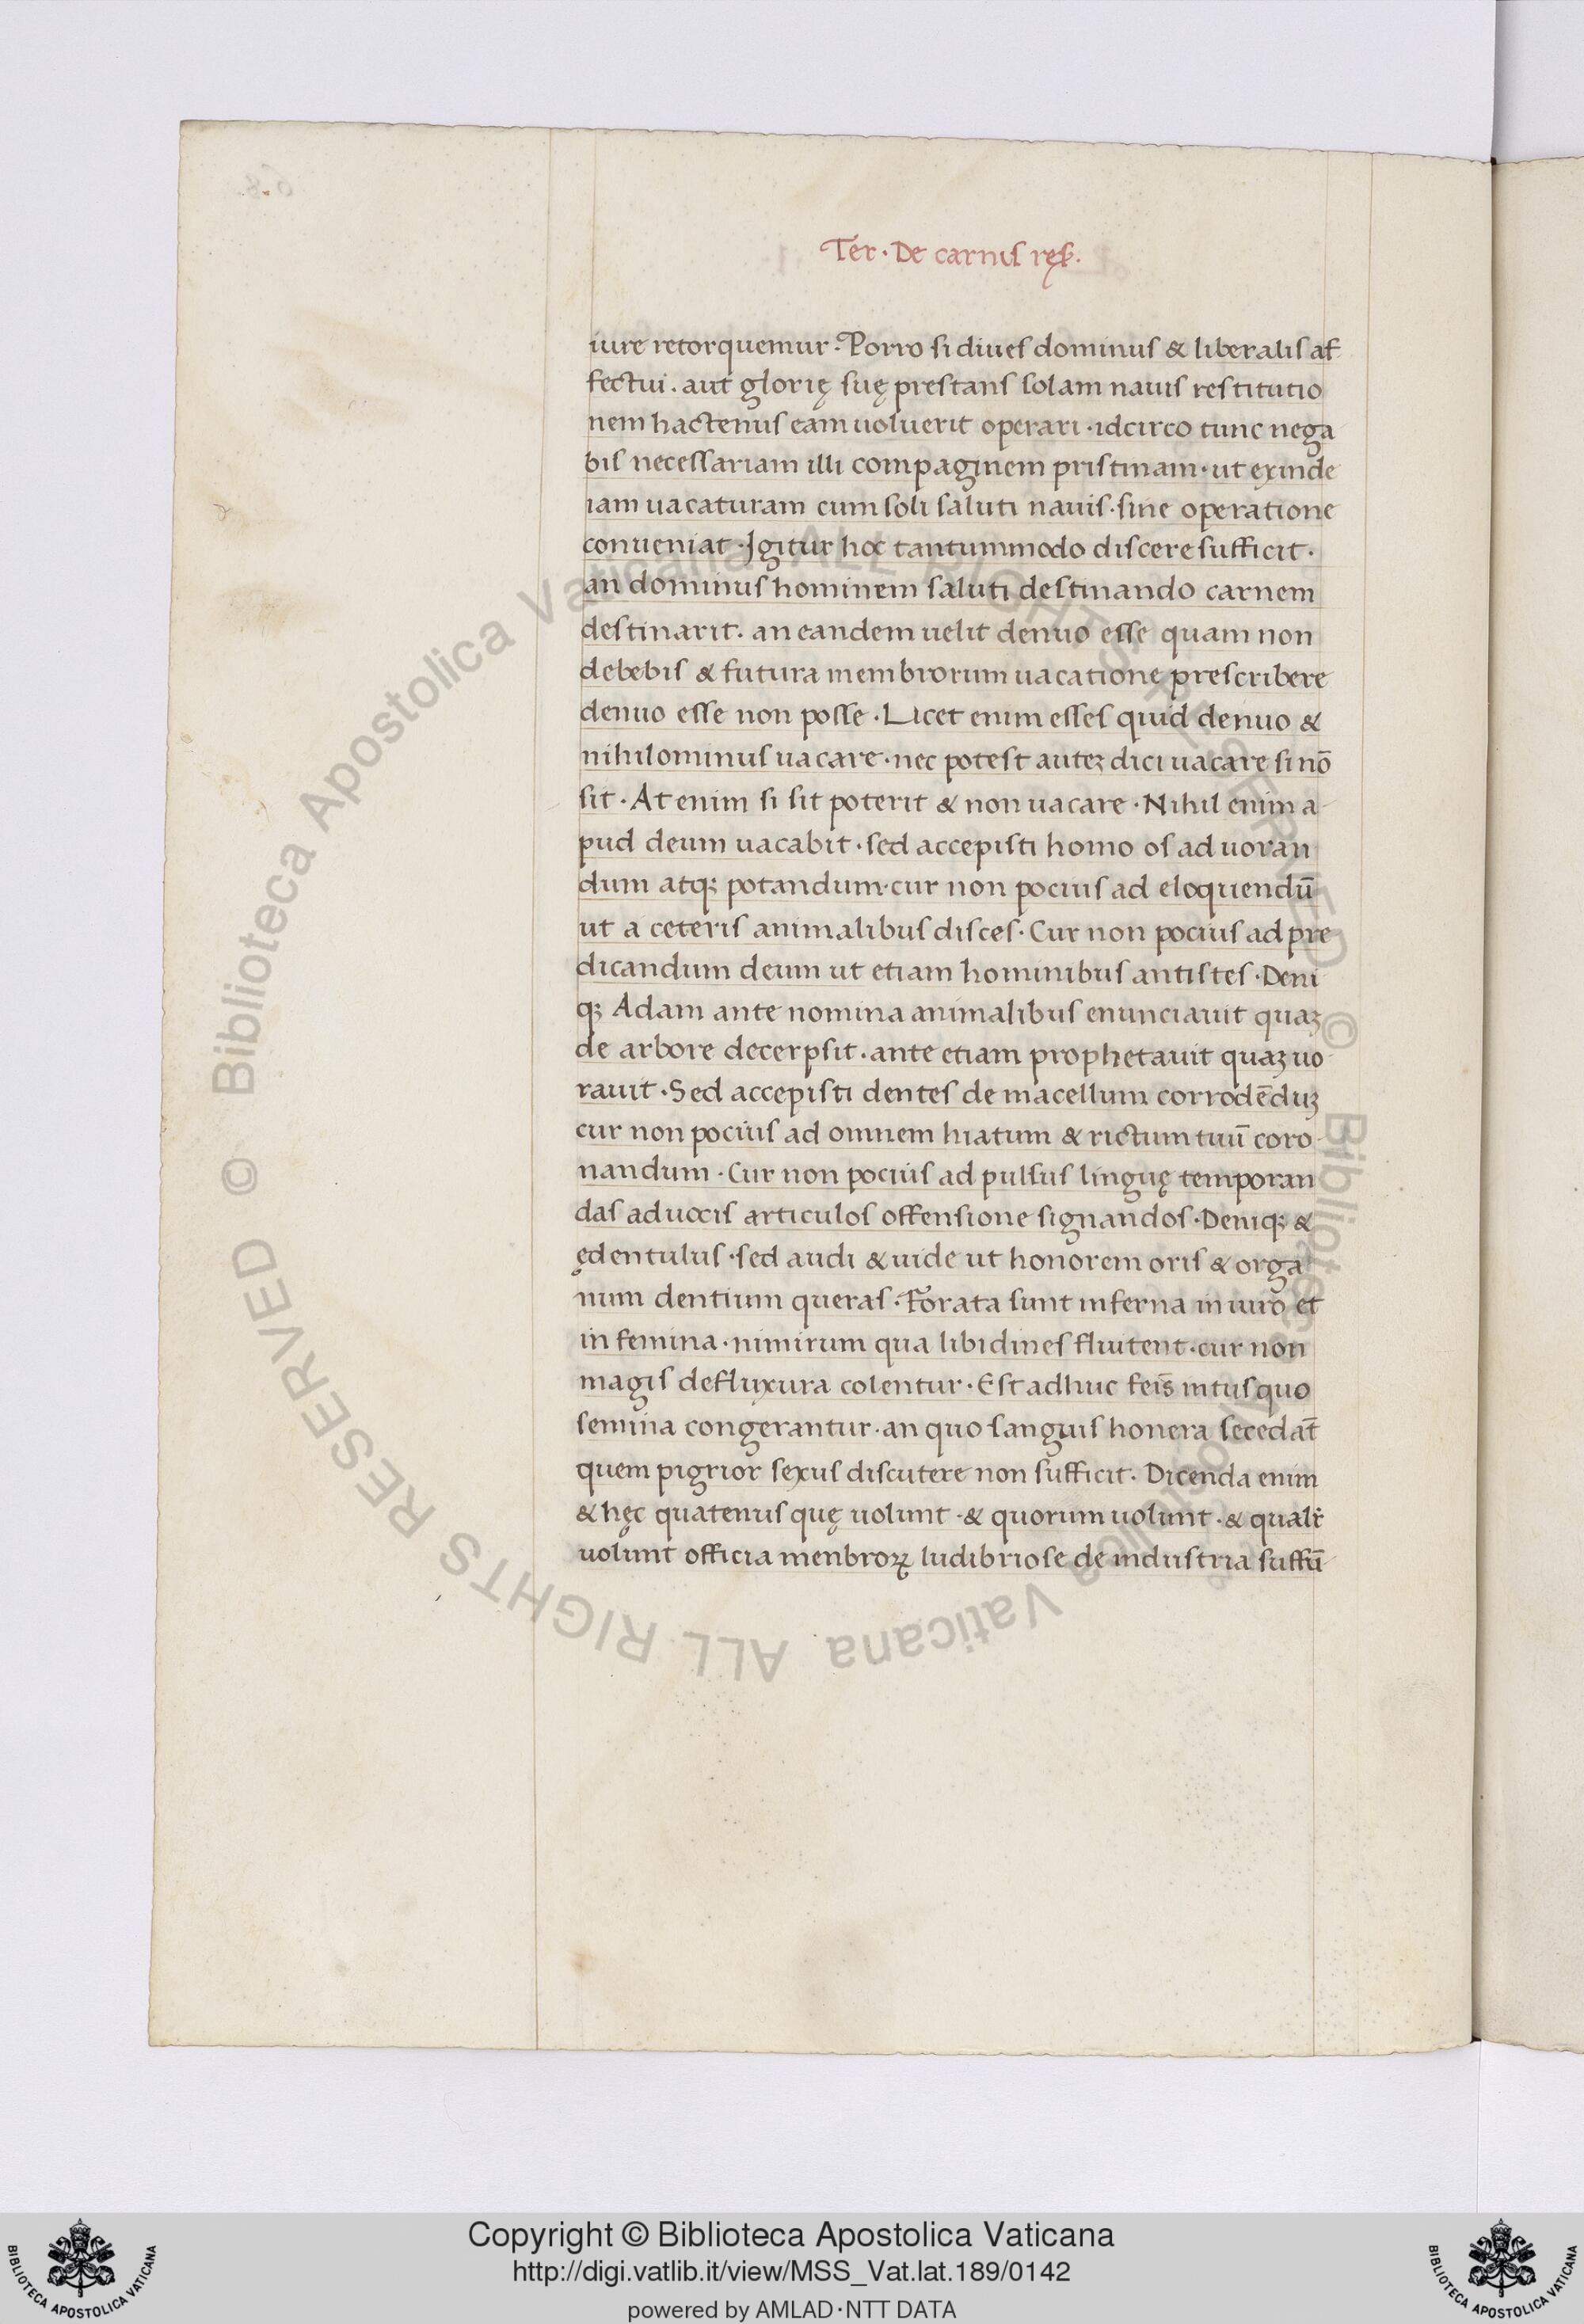 Ter · De carnis reſ.
iure retorquemur · Porro si diues dominus & liberalis af
fectui . aut glorię suę prestans solam nauis restitutio
nem hactenus eam uoluerit operari · idcirco tunc nega
bis necessariam illi compaginem pristinam · ut exinde
iam uacaturam cum soli saluti nauis · sine operatione
conueniat · Igitur hoc tantummodo discere sufficit ·
an dominus hominem saluti destinando carnem
destinarit . an eandem uelit denuo esse quam non
debebis & futura membrorum uacatione prescribere
denuo esse non posse · Licet enim esses quid denuo &
nihilominus uacare · nec potest auteꝫ dici uacare si nō
sit · At enim si sit poterit & non uacare · Nihil enim a
pud deum uacabit · sed accepisti homo os ad uoran
dum atqꝫ potandum · cur non pocius ad eloquendū
ut a ceteris animalibus disces · Cur non pocius ad pre
dicandum deum ut etiam hominibus antistes · Deni
qꝫ Adam ante nomina animalibus enunciauit quaꝫ
de arbore decerpsit . ante etiam prophetauit quaꝫ uo
rauit · Sed accepisti dentes de macellum corrodēduꝫ
cur non pocius ad omnem hiatum & rictum tuū coro
nandum · Cur non pocius ad pulsus linguę temporan
das ad uocis articulos offensione signandos · Deniqꝫ &
ędentulus · sed audi & uide ut honorem oris & orga
num dentium queras · Forata sunt inferna in uiro et
in femina · nimirum qua libidines fluitent · cur non
magis defluxura colentur · Est adhuc feīs intus quo
semina congerantur · an quo sanguis honera secedat̄
quem pigrior sexus discutere non sufficit · Dicenda enim
& hęc quatenus quę uolunt · & quorum uolunt · & qualr̄
uolunt officia menbroꝝ ludibriose de industria suffū
© Biblioteca Apostolica Vaticana ALL RIGHTS RESERVED © Biblioteca Apostolica Vaticana ALL RIGHTS RESERVED
Copyright © Biblioteca Apostolica Vaticana
http://digi.vatlib.it/view/MSS_Vat.lat.189/0142
powered by AMLAD·NTT DATA
BIBLIOTECA APOSTOLICA VATICANA
BIBLIOTECA APOSTOLICA VATICANA